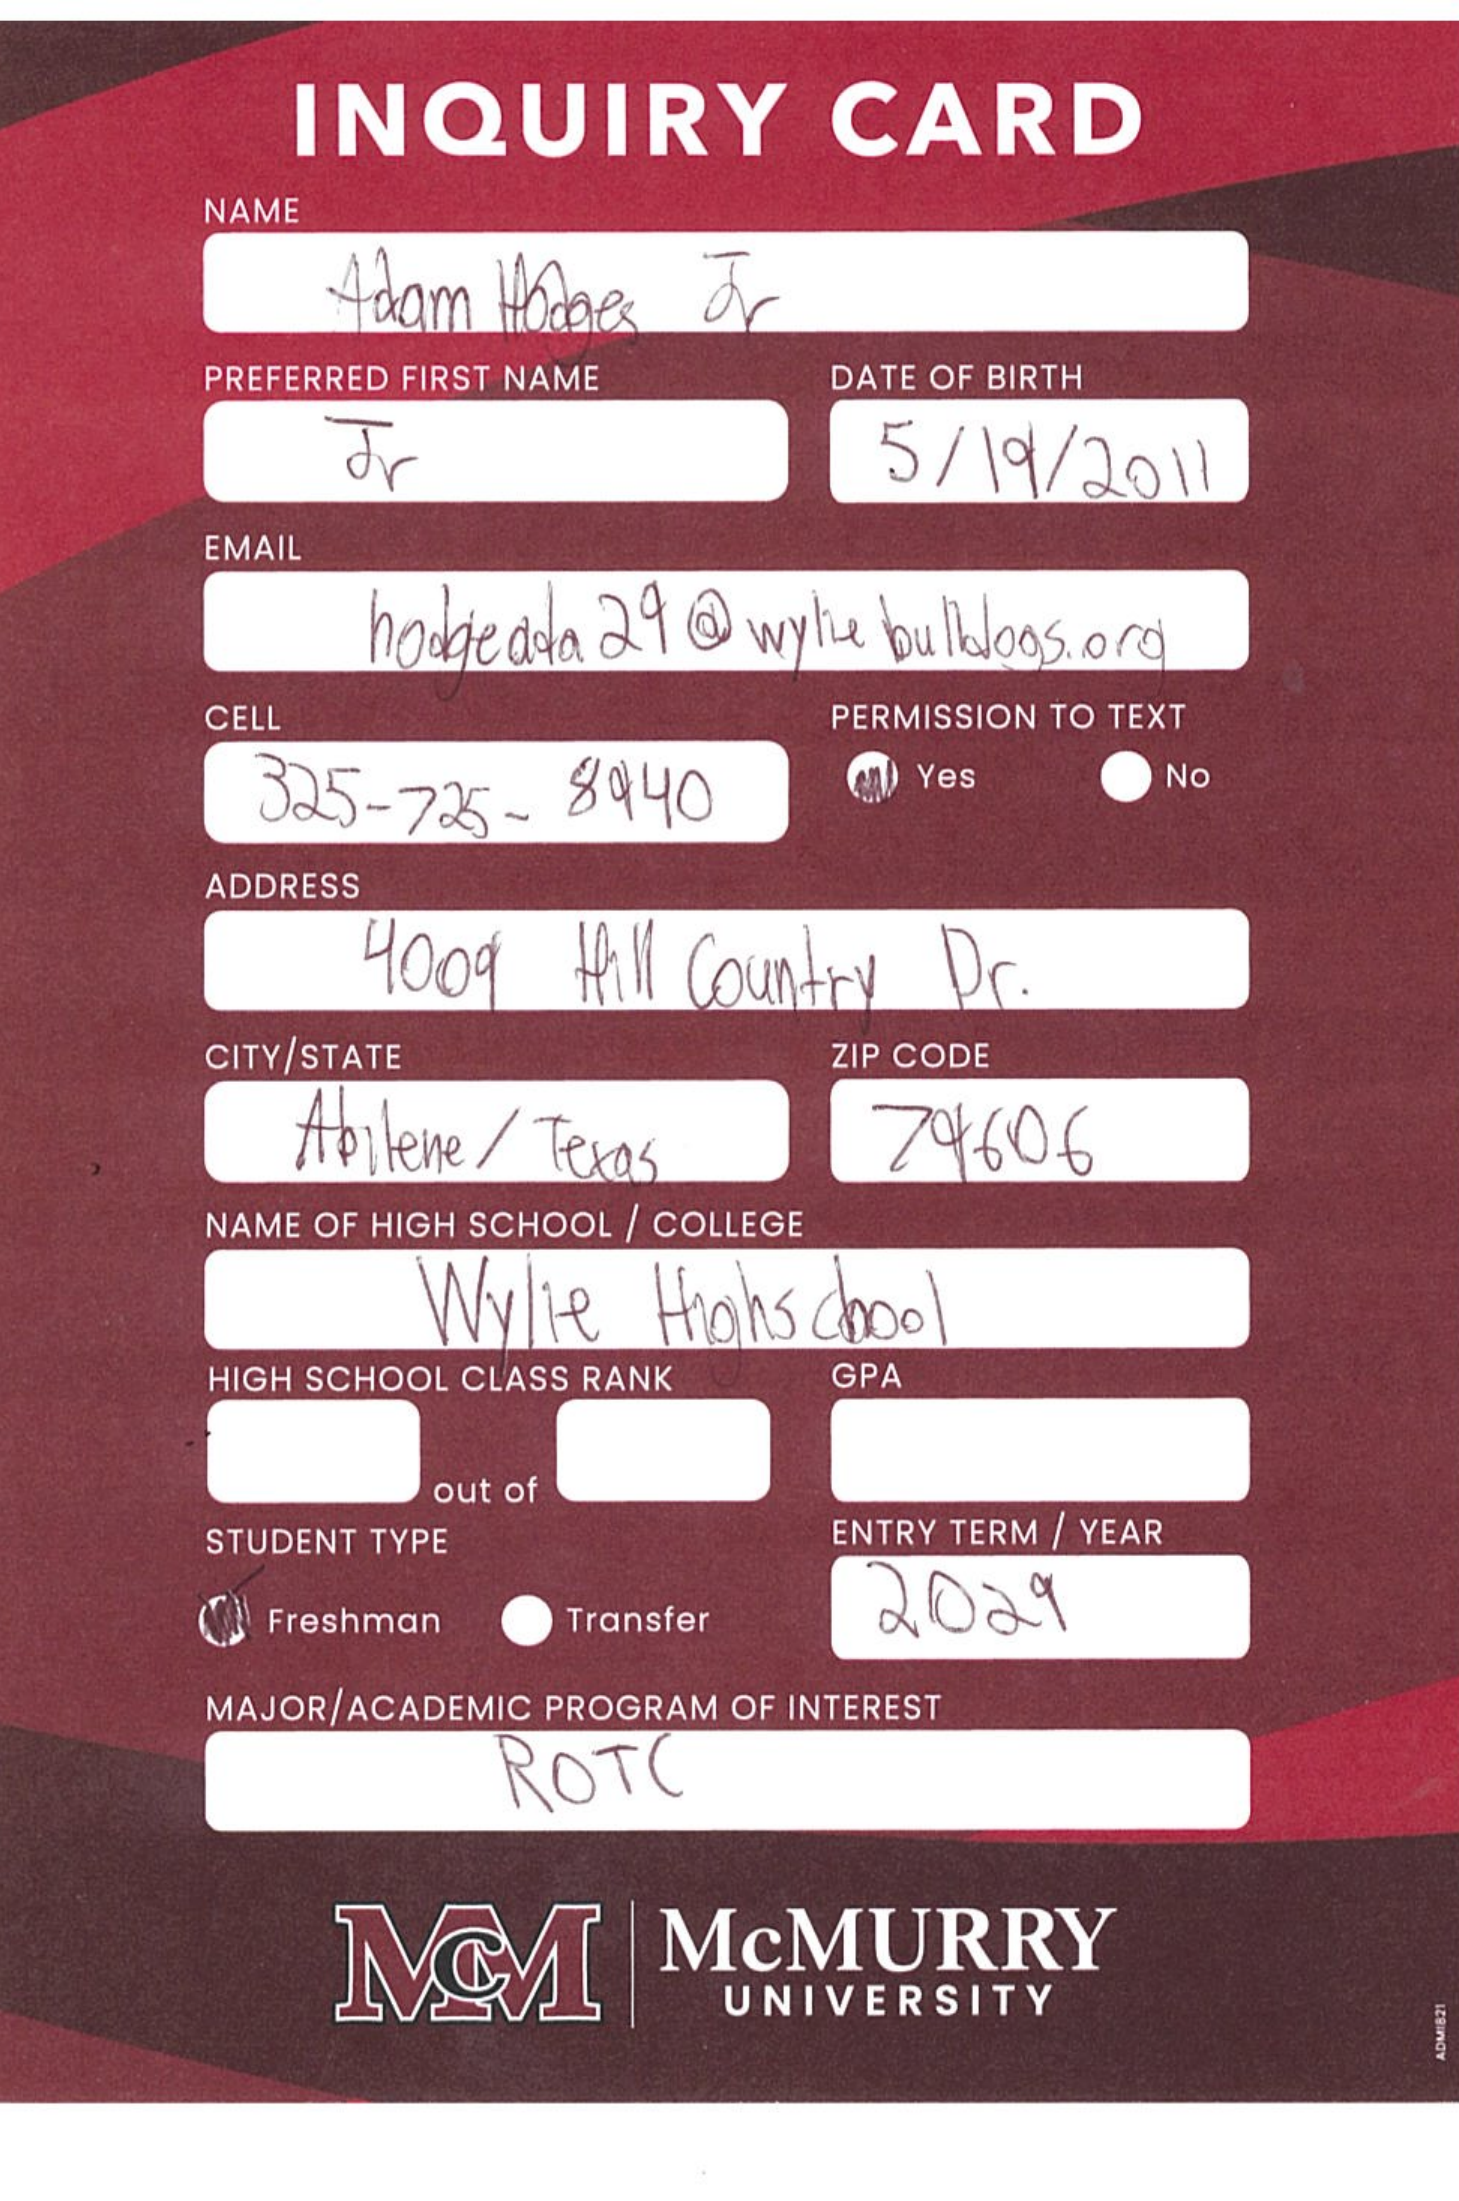 INQUIRY CARD
NAME
Adam Hodges Jr
PREFERRED FIRST NAME
DATE OF BIRTH
Jr
5/19/2011
EMAIL
hodgeada29@wyliebulldogs.org
CELL
PERMISSION TO TEXT
325-725-8940
Yes
No
ADDRESS
4009 Hill Country Dr.
CITY/STATE
ZIP CODE
Abilene/Texas
79606
NAME OF HIGH SCHOOL / COLLEGE
Wylie Highschool
HIGH SCHOOL CLASS RANK
GPA
out of
STUDENT TYPE
ENTRY TERM / YEAR
Freshman
Transfer
2029
MAJOR/ACADEMIC PROGRAM OF INTEREST
ROTC
McM
McMURRY
UNIVERSITY
ADM1821